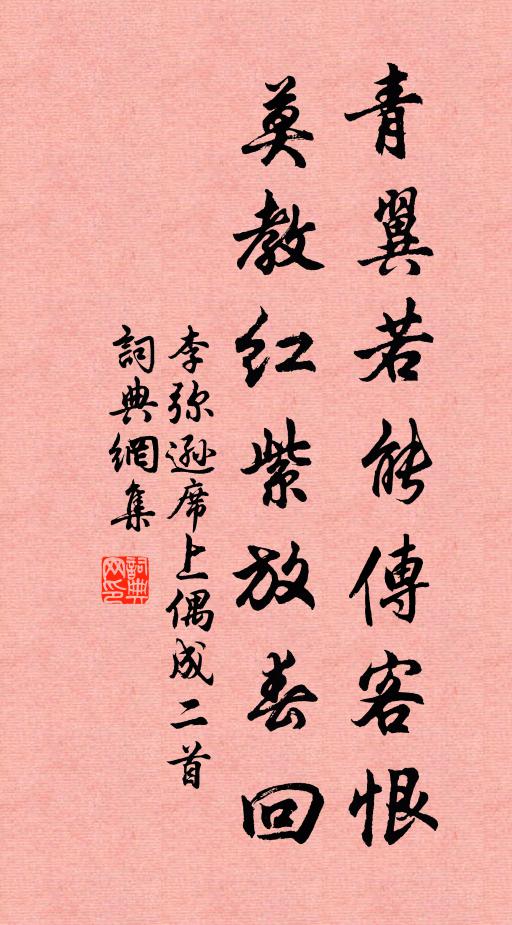 青翼若能傳客恨
莫教紅紫放春回
李弥遜席上偶成二首
詞典網集
詞典网印